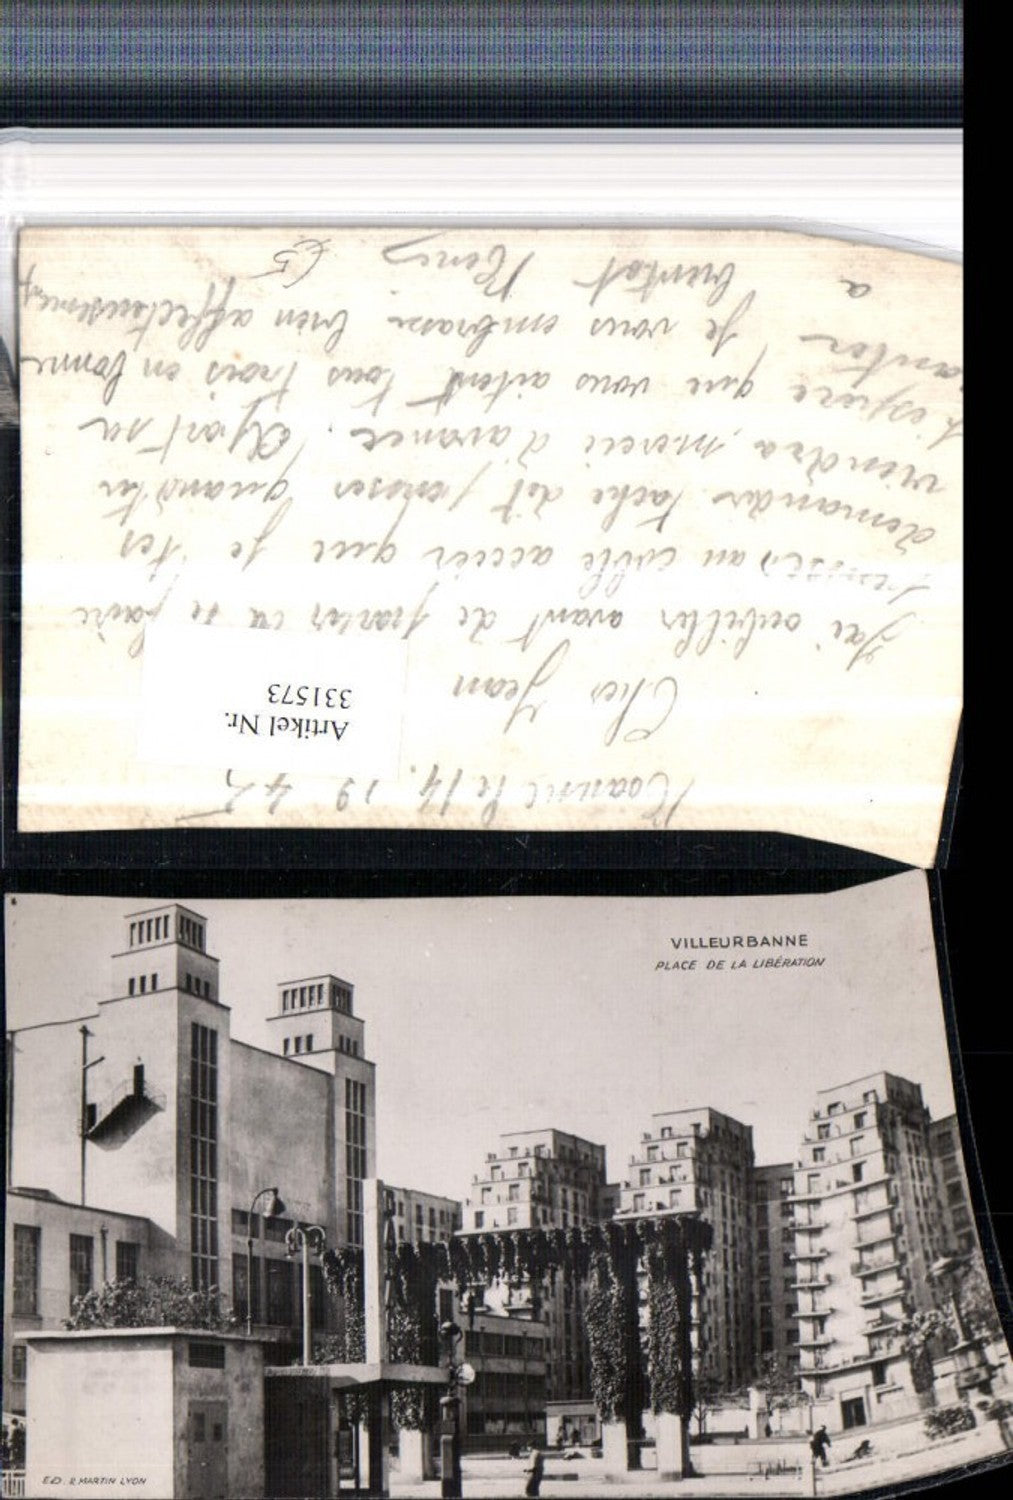 Roanne le 14. 19 45
Cher Jean
J'ai oublier avant de partir ca se faire
au colle accier que je tes
demander tache dit penser quand tu
viendra, merci d'avance. Apart sa
j'espere que vous aitent tous trois en bonne
santer Je vous embrasse bien affectueusement
a bientot Rene
Artikel Nr.
331573
VILLEURBANNE
PLACE DE LA LIBÉRATION
ED. R. MARTIN LYON